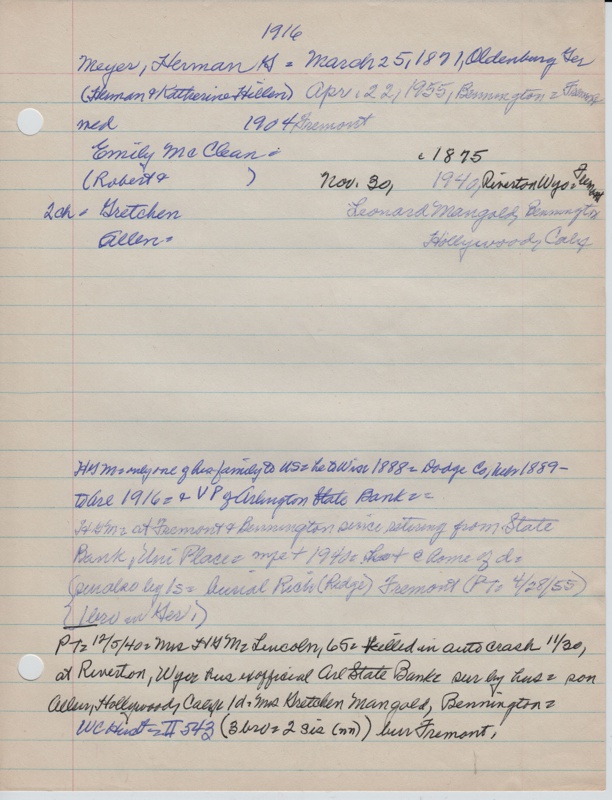 1916
Meyer, Herman G = March 25, 1871, Oldenburg Ger
(Herman & Katherine Hillen) Apr. 22, 1955, Bennington = Fremont
med 1904 Fremont
Emily McClean = c 1875
(Robert & ) Nov. 30, 1940, Riverton Wyo = Fremont
2ch = Gretchen Leonard Mangold, Bennington
Allen = Hollywood, Calif
HGM = only one of his family to US = he to Wisc 1888 = Dodge Co, Nebr 1889 -
to Arl 1916 = & VP of Arlington State Bank = =
HGM = at Fremont & Bennington since retiring from State
Bank, Uni Place = 1940 = @ home of d =
(sur also by 1s = burial Rich (Ridge) Fremont (PT = 4/28/55)
(1 bro in Ger.)
PT = 12/5/40 = Mrs HGM = Lincoln, 65 = killed in auto crash 11/30,
at Riverton, Wyo = hus ex official Arl State Bank = sur by hus = son
Allen, Hollywood, Calif = 1d = Mrs Gretchen Mangold, Bennington =
WC Hist = II 543 (3 bro = 2 sis (nn)) bur Fremont.